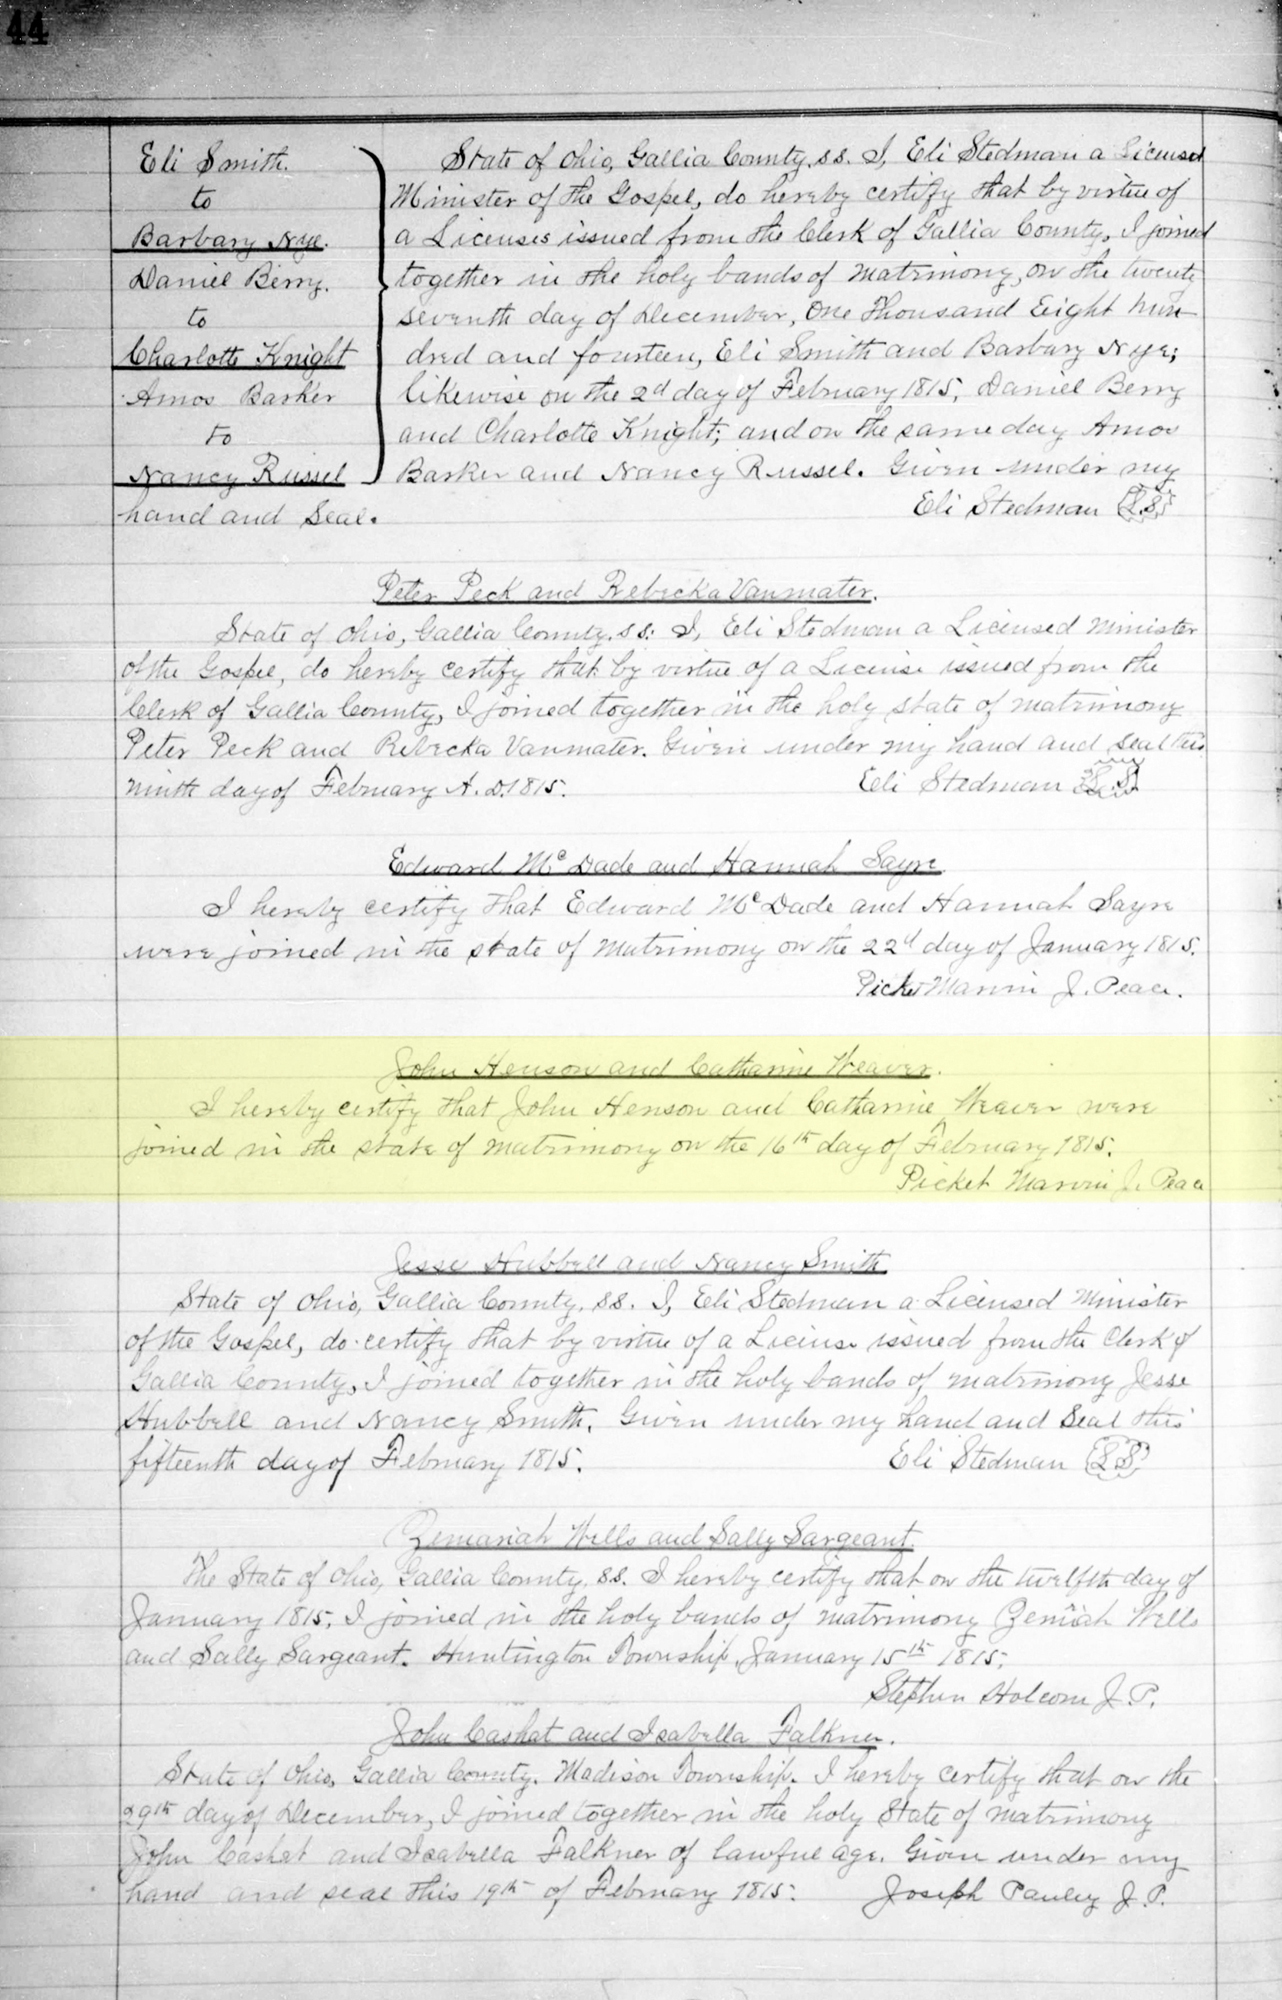 44
Eli Smith.
to
Barbary Nye.
Daniel Berry.
to
Charlotte Knight
Amos Barker
to
Nancy Russel
State of Ohio, Gallia County, ss. I, Eli Stedman a Licensed
Minister of the Gospel, do hereby certify that by virtue of
a Licenses issued from the Clerk of Gallia County, I joined
together in the holy bands of matrimony, on the twenty
seventh day of December, One Thousand Eight hun-
dred and fourteen, Eli Smith and Barbary Nye;
likewise on the 2d day of February 1815, Daniel Berry
and Charlotte Knight; and on the same day Amos
Barker and Nancy Russel. Given under my
hand and Seal. Eli Stedman L.S.
Peter Peck and Rebecka Vanmater.
State of Ohio, Gallia County, ss: I, Eli Stedman a Licensed Minister
of the Gospel, do hereby certify that by virtue of a License issued from the
Clerk of Gallia County, I joined together in the holy state of matrimony
Peter Peck and Rebecka Vanmater. Given under my hand and seal this
ninth day of February A.D. 1815. Eli Stedman L.S.
Edward McDade and Hannah Sayre
I hereby certify that Edward McDade and Hannah Sayre
were joined in the state of matrimony on the 22d day of January 1815.
Picket Marvin J. Peace.
John Henson and Catharine Weaver.
I hereby certify that John Henson and Catharine Weaver were
joined in the state of matrimony on the 16th day of February 1815.
Picket Marvin J. Peace
Jesse Hubbell and Nancy Smith
State of Ohio, Gallia County, ss. I, Eli Stedman a Licensed Minister
of the Gospel, do certify that by virtue of a License issued from the Clerk of
Gallia County, I joined together in the holy bands of matrimony Jesse
Hubbell and Nancy Smith. Given under my hand and Seal this
fifteenth day of February 1815. Eli Stedman L.S.
Zemariah Wells and Sally Sargeant.
The State of Ohio, Gallia County, ss. I hereby certify that on the twelfth day of
January 1815, I joined in the holy bands of matrimony Zemiah Wells
and Sally Sargeant. Huntington Township, January 15th 1815.
Stephen Holcom J.P.
John Cashat and Isabella Falkner.
State of Ohio, Gallia County. Madison Township. I hereby certify that on the
29th day of December, I joined together in the holy State of matrimony
John Cashat and Isabella Falkner of lawful age. Given under my
hand and seal this 19th of February 1815. Joseph Pauley J.P.